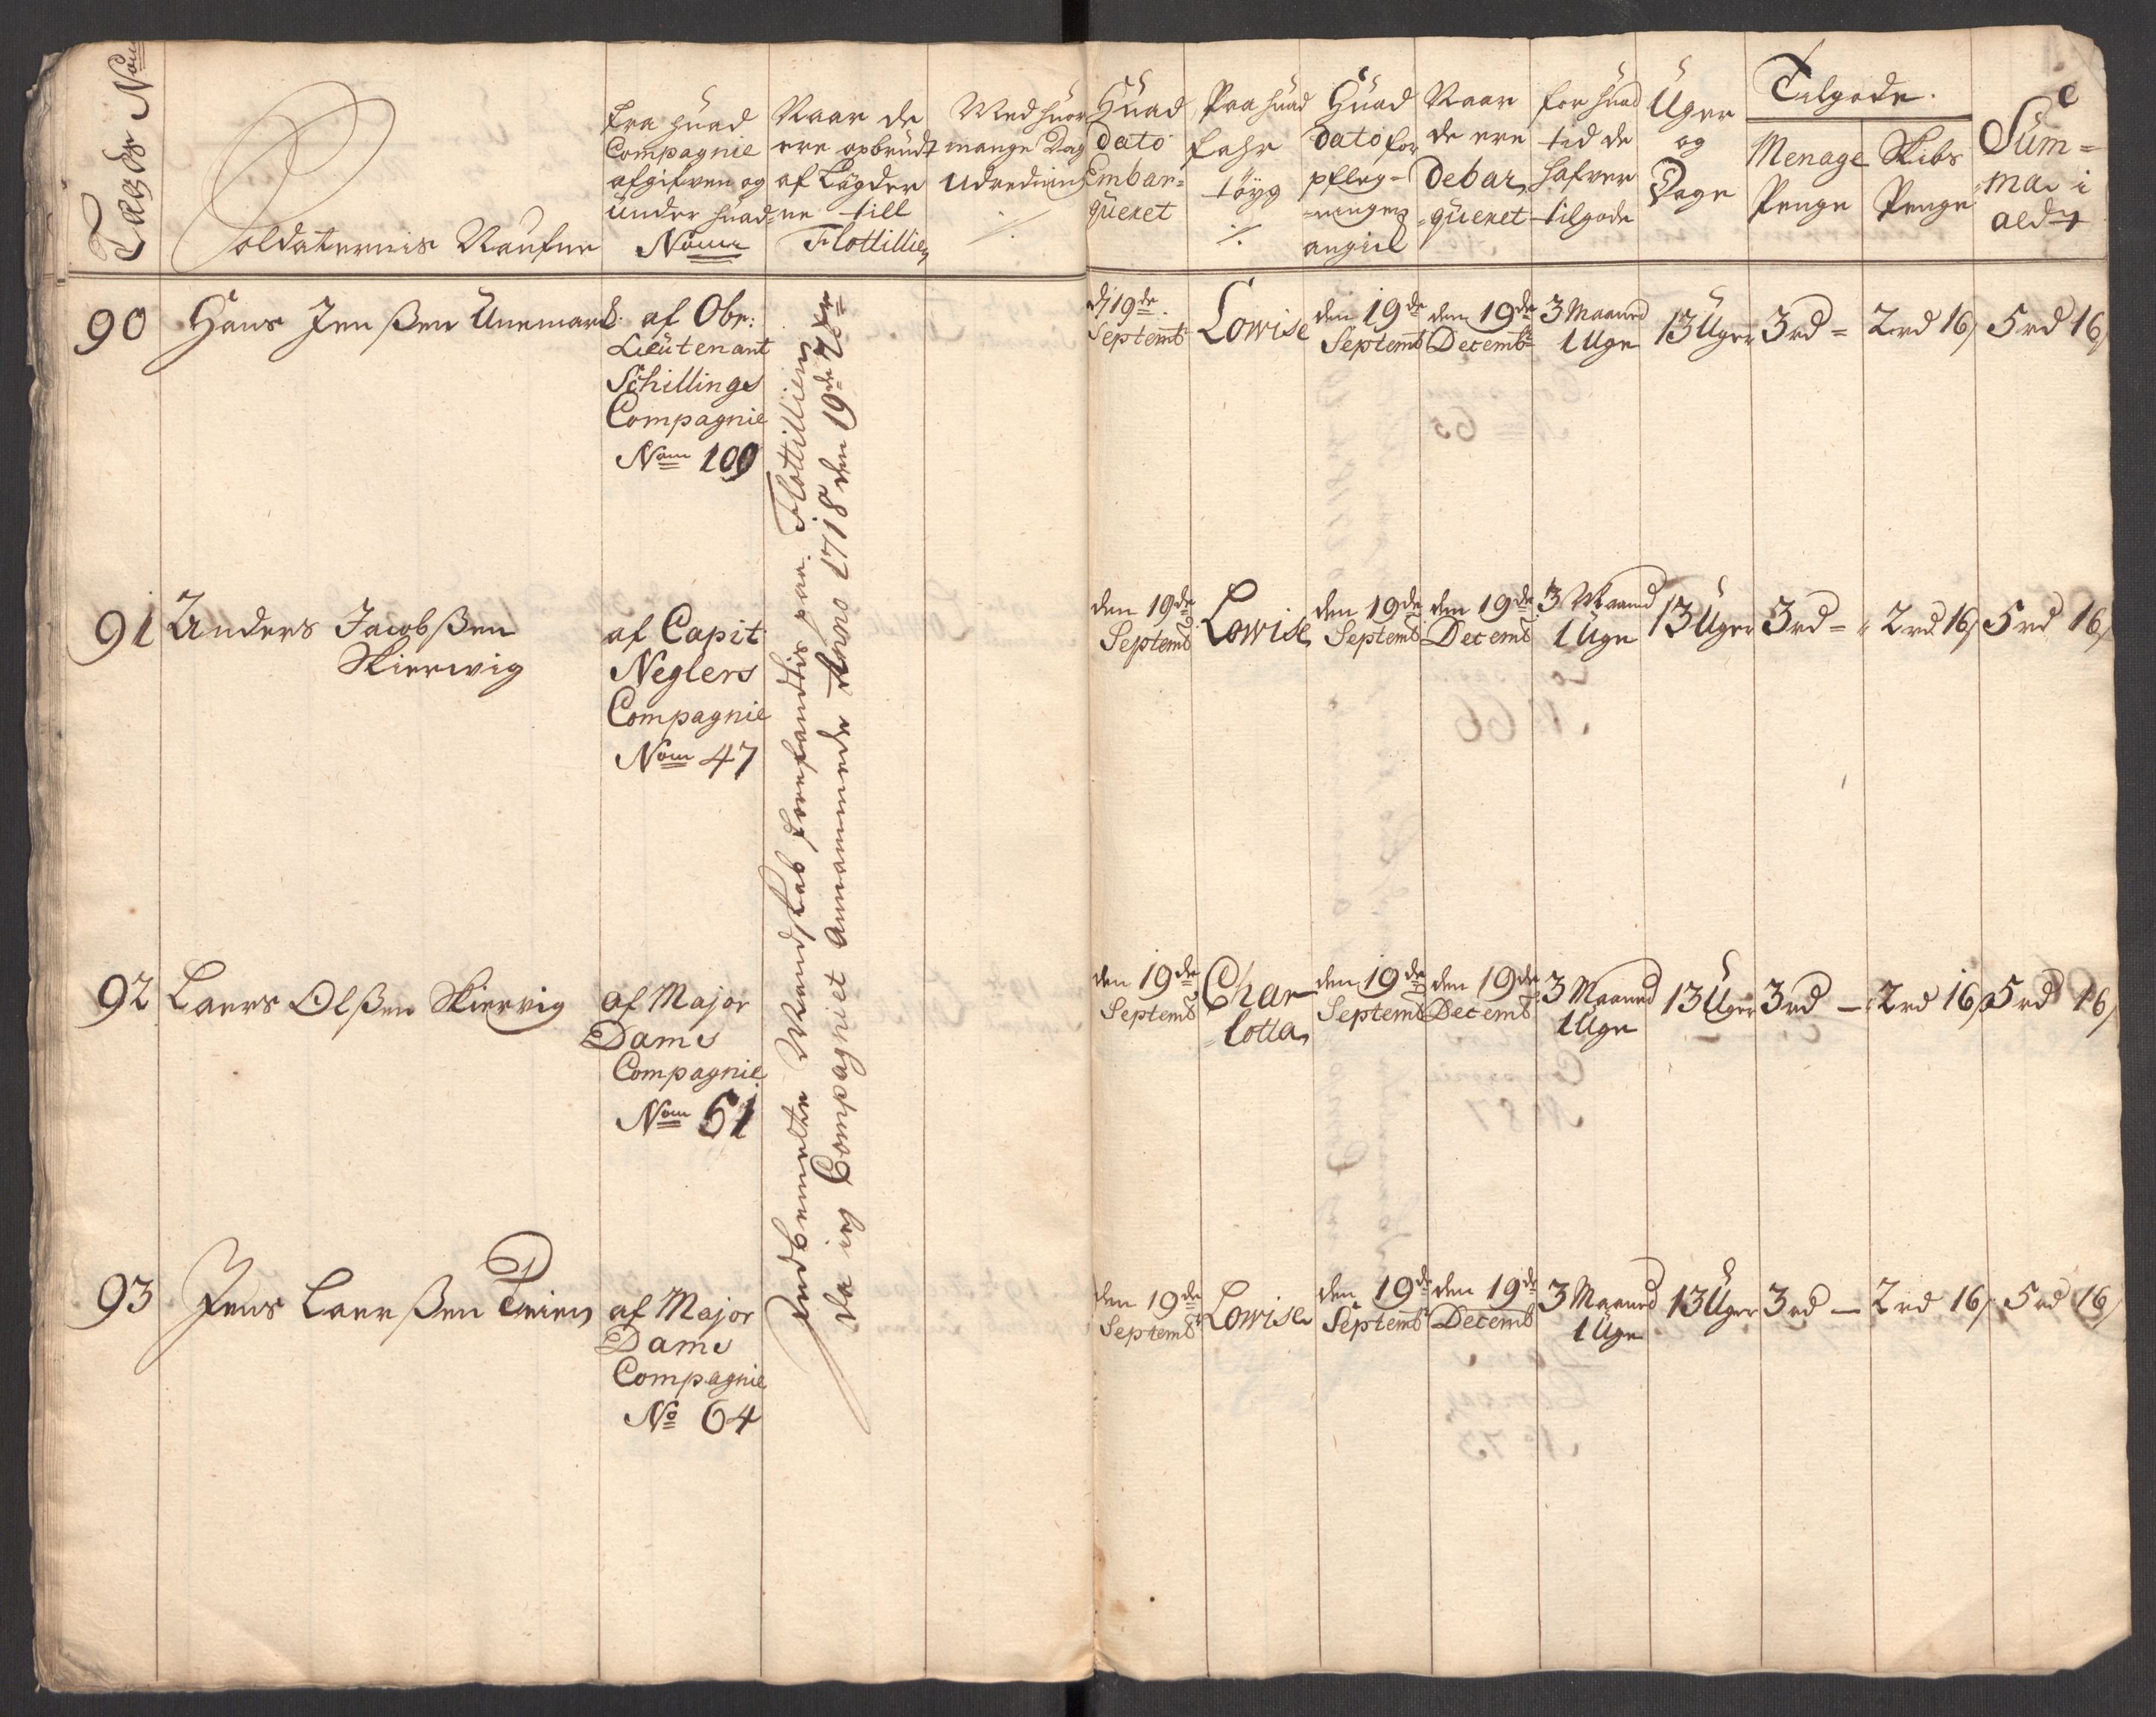 Lægds Nom
Soldaternis Naufne
fra huad
Compagnie
afgifven og
under huad
Nom
Naar de
ere opbrudt
af Lægder
-ne till
Flottillien
Med huor
mange Dag
Udredning
./.
Huad
dato
Embar=
queret
Paa huad
fahr
töyg
./.
Huad
dato for
pfleg-
=ningen
angiel
Naar
de ere
debar
=queret
for huad
tid de
hafver
tilgode
Uger
og
Dage
Tilgode.
Menage
Penge
Skibs
Penge
Sum=
ma i
aedt
90 Hans Jenßen Unemark. af Obr:
Lieutenant
Schillings
Compagnie
Nom 109
d 19de Septemb Lowise den 19de Septemb den 19de Decembr 3 Maaned 1 Uge 13 Uger 3rd = 2rd 16 5rd 16
91 Anders Jacobßen
Skierwig
af Capit
Neglers
Compagnie
Nom 47
den 19de Septemb Lowise den 19de Septemb den 19de Decemb 3 Maaned 1 Uge 13 Uger 3rd = 2rd 16 5rd 16
92 Laers Olßen Skiervig af Major
Dams
Compagnie
Nom 61
den 19de Septemb Char=lotta den 19de Septemb den 19de Decemb 3 Maaned 1 Uge 13 Uger 3rd — 2rd 16 5rd 16
93 Jens Laerßen af Major
Dams
Compagnie
No 64
den 19de Septemb Lowise den 19de Septemb den 19de Decemb 3 Maaned 1 Uge 13 Uger 3rd — 2rd 16 5rd 16
Indbemelte Mandskab forefandtis paa Flottillien
da ieg Compagniet annammede Anno 1718 den 19de 7br